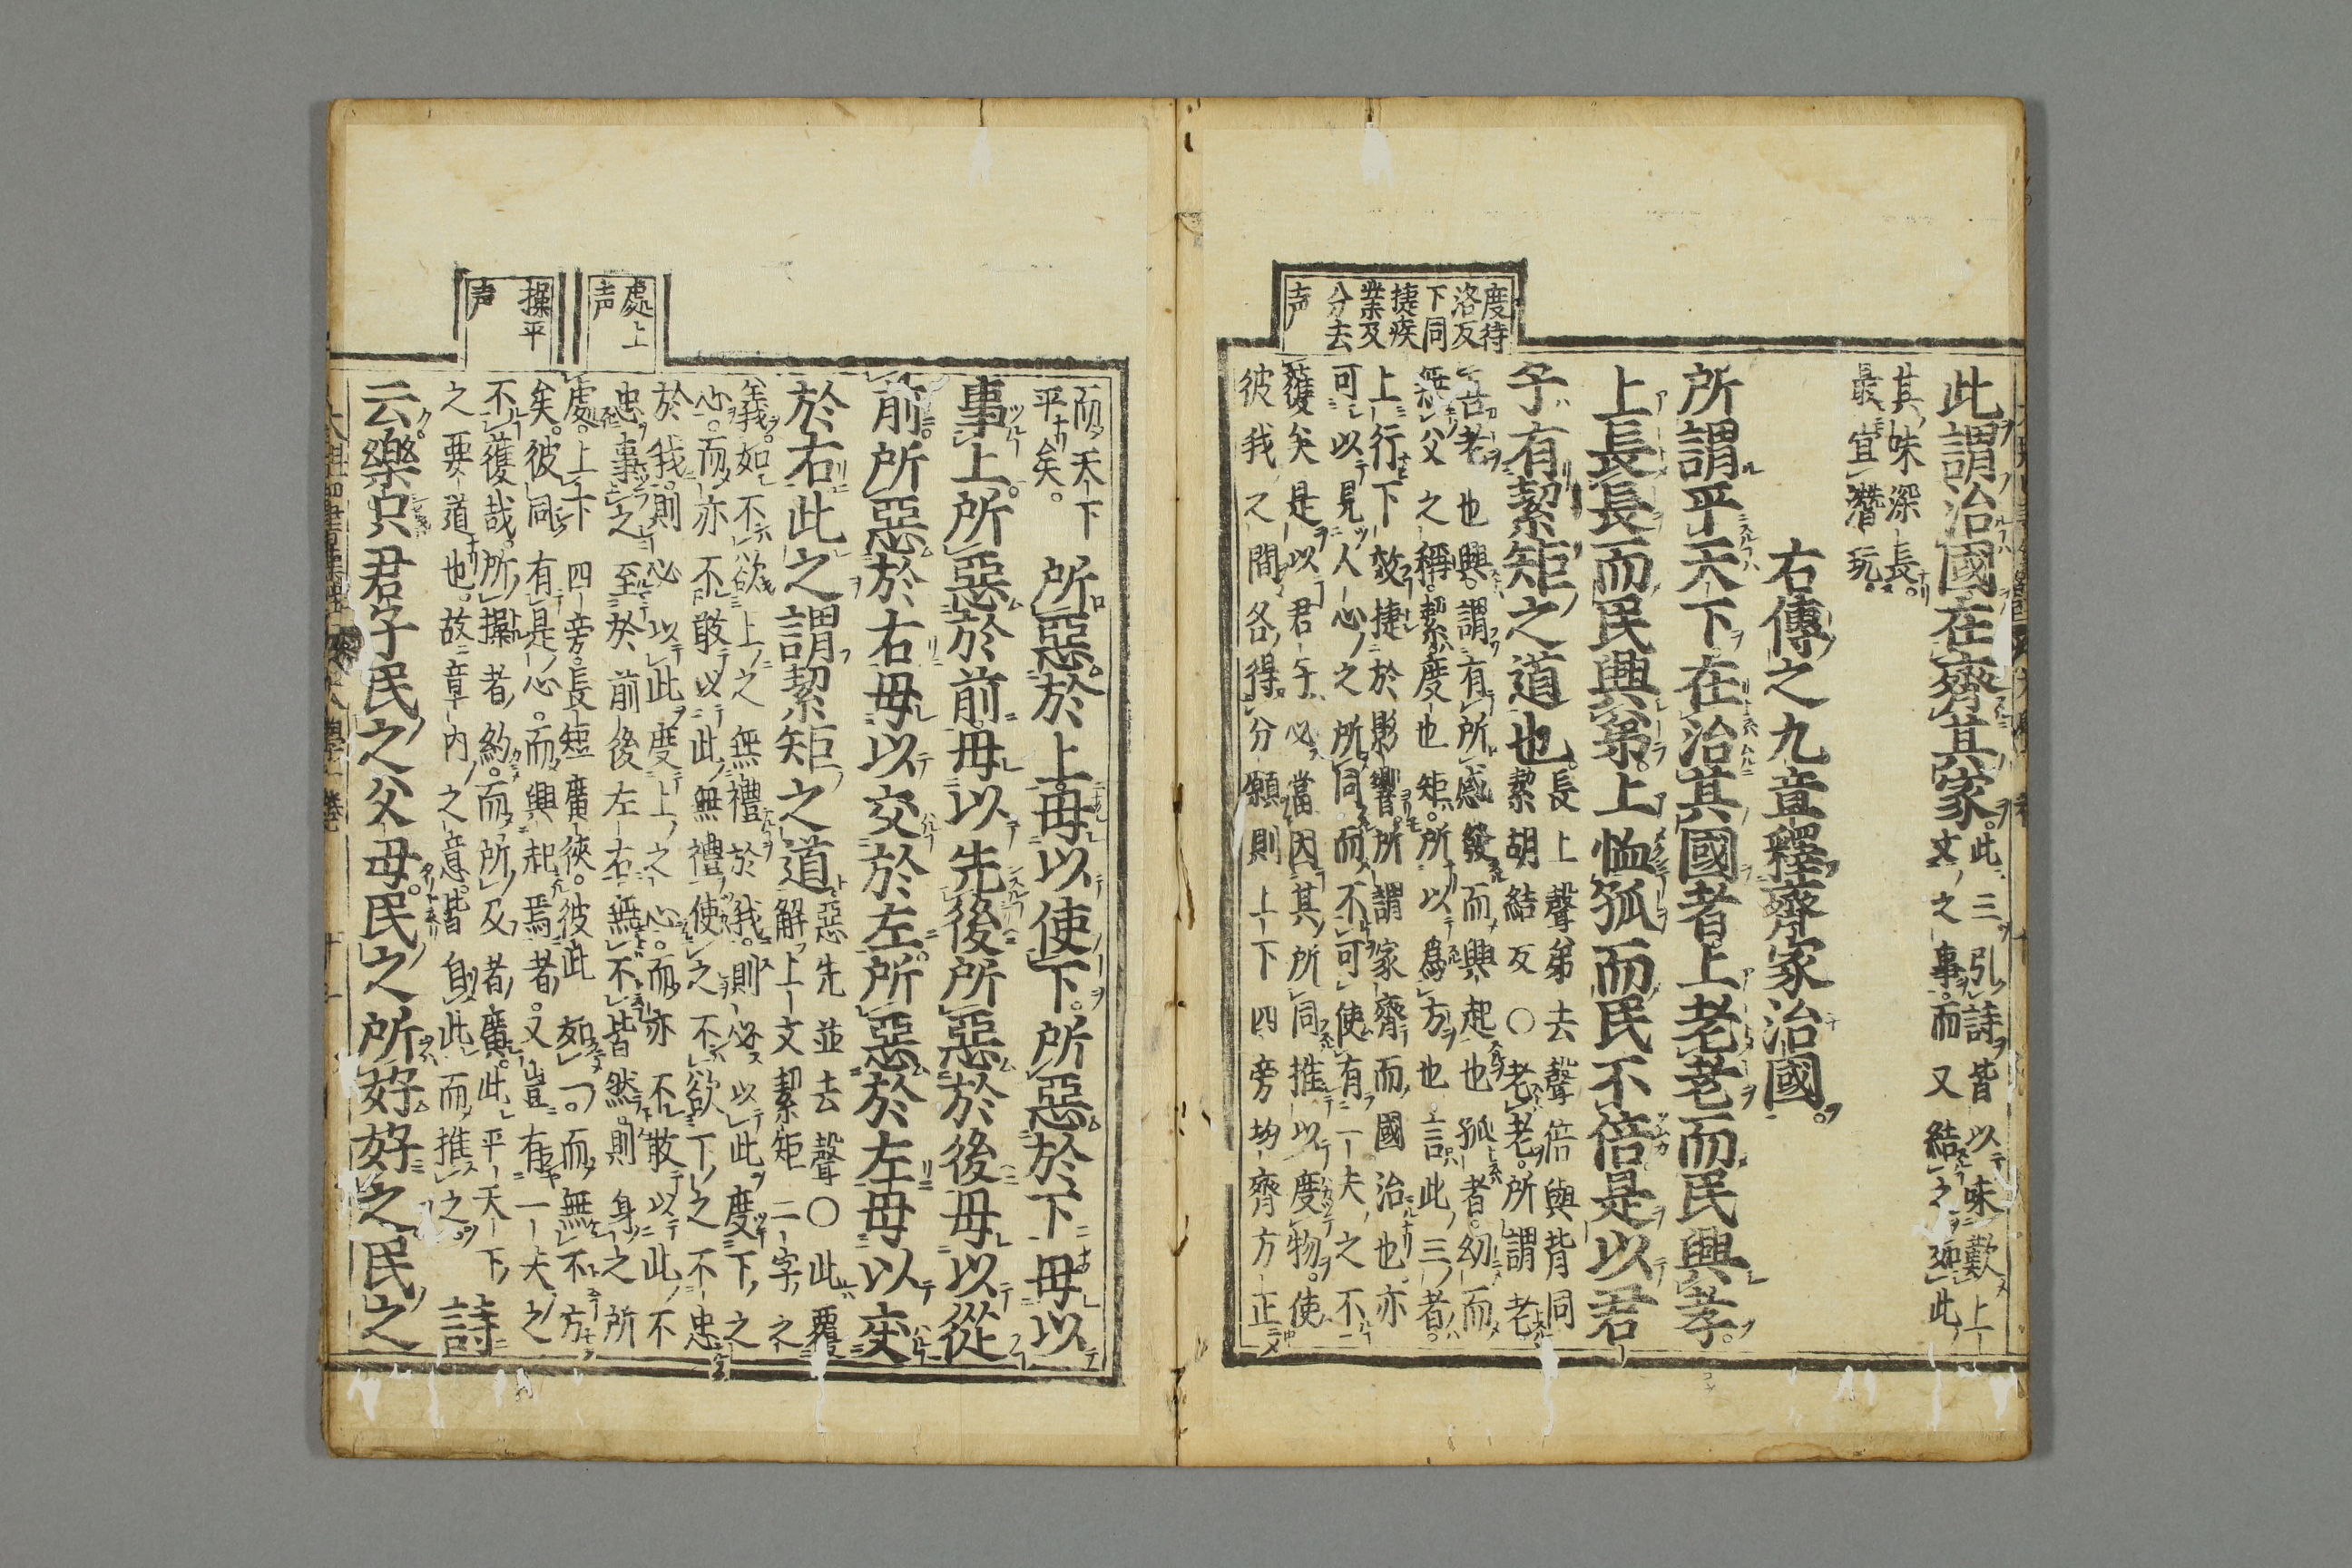 度待
洛反
下同
捷疾
業及
分去
声
此謂治國在齊其家。此三引詩皆以味歎上
文之事。而又結之如此
其味深長。
最宜潛玩。
右傳之九章釋齊家治國。
所謂平天下在治其國者上老老而民興孝。
上長長而民興弟。上恤孤而民不倍是以君
子有絜矩之道也。長上聲弟去聲倍與背同
絜胡結反○老老。所謂老
吾老也興。謂有所感發而興起也孤者。幼而
無父之稱。絜度也矩。所以為方也言此三者。
上行下效捷於影響。所謂家齊而國治也亦
可以見人心之所同而不可使有一夫之不
獲矣是以君子必當因其所同推以度物。使
彼我之間各得分願則上下四旁均齊方正
而天下
平矣。
所惡於上毋以使下。所惡於下毋以
事上。所惡於前毋以先後所惡於後毋以從
前。所惡於右毋以交於左。所惡於左毋以交
於右此之謂絜矩之道惡先並去聲○此覆
解上文絜矩二字之
義。如不欲上之無禮於我。則必以此度下之
心。而亦不敢以此無禮使之不欲下之不忠
於我。則必以此度上之心。而亦不敢以此不
忠事之至於前後左右無不皆然。則身之所
處。上下四旁。長短廣狹。彼此如一。而無不方
矣。彼同有是心。而興起焉者。又豈有一夫之
不獲哉。所操者約。而所及者廣。此平天下
之要道也。故章內之意。皆自此而推之。
詩
云樂只君子民之父母。民之所好好之民之
處上
声
操平
声